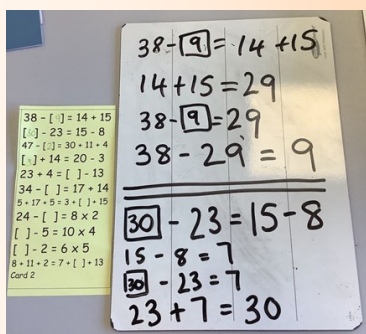 38 - [9] = 14 + 15
[30] - 23 = 15 - 8
47 - [2] = 30 + 11 + 4
[ ] + 14 = 20 - 3
23 + 4 = [ ] - 13
34 - [ ] = 17 + 14
5 + 17 + 5 = 3 + [ ] + 15
24 - [ ] = 8 x 2
[ ] - 5 = 10 x 4
[ ] - 2 = 6 x 5
8 + 11 + 2 = 7 + [ ] + 13
Card 2
38-[9]=14+15
14+15=29
38-[9]=29
38-29=9
[30]-23=15-8
15-8=7
[30]-23=7
23+7=30